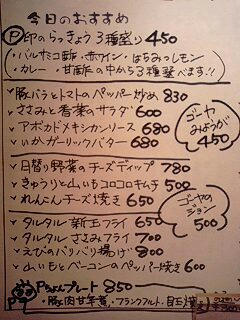 今日のおすすめ
P印のらっきょう 3種盛り 450
・バルサミコ酢・赤ワイン・はちみつレモン
・カレー・甘酢の中から3種選べます!!
豚バラとトマトのペッパー炒め 830
ささみと香菜のサラダ 600
アボカドメキシカンリース 680
いかガーリックバター 680
ゴーヤ
みょうが
450
日替り野菜のチーズディップ 780
きゅうりと山いもコロコロキムチ 500
れんこんチーズ焼き 650
ゴーヤの
500
タルタル新玉フライ 650
タルタルささみフライ 700
えびのパリパリ揚げ 800
山いもとベーコンのペッパー焼き 600
Pちょんプレート 850
・豚肉甘辛煮・フランクフルト・目玉焼